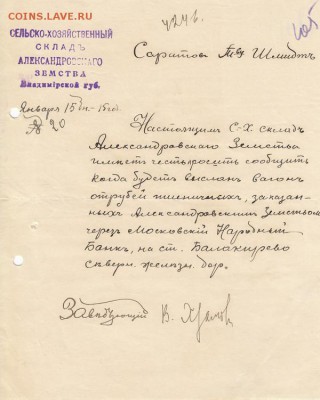 COINS.LAVE.RU
4246.
СЕЛЬСКО-ХОЗЯЙСТВЕННЫЙ
СКЛАДЪ
АЛЕКСАНДРОВСКАГО
ЗЕМСТВА
Владимірской губ.
Саратовъ Т-во Шмидтъ
Января 15 дн. - 15 года
№ 20
Настоящимъ С-Х складъ
Александровскаго Земства
имѣетъ честь просить сообщить
когда будетъ высланъ вагонъ
отрубей пшеничныхъ, заказан-
ныхъ Александровскимъ Земствомъ
черезъ Московскій Народный
Банкъ, на ст. Балакирево
Сѣверн. желѣзн. дор.
Завѣдующій